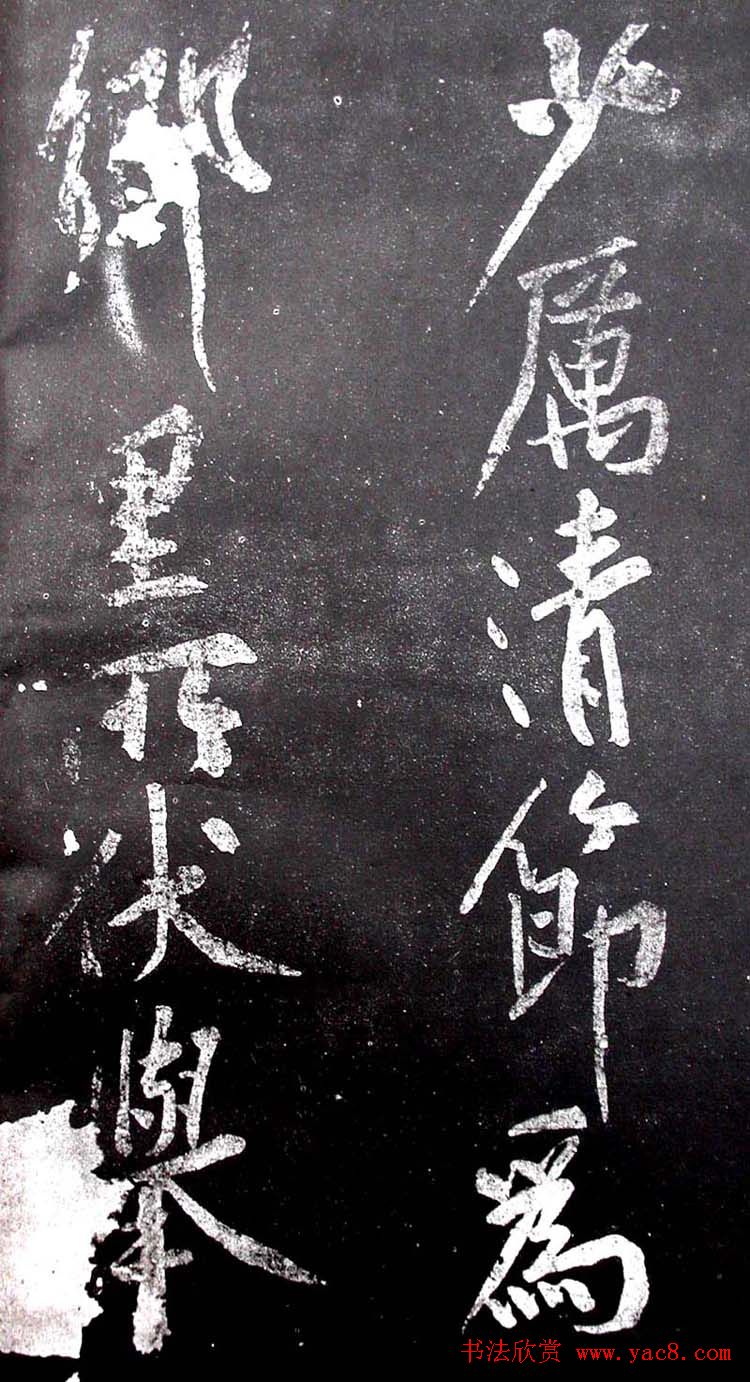 少厲清節為
鄉里所伏舉
书法欣赏 www.yac8.com